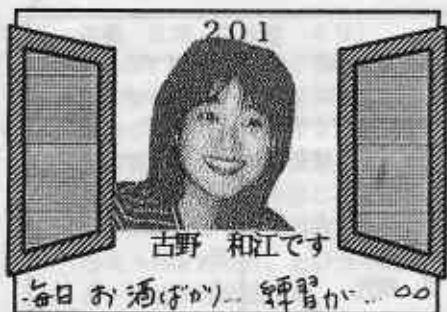 ２０１
古野　和江です
毎日 お酒ばかり... 練習が...